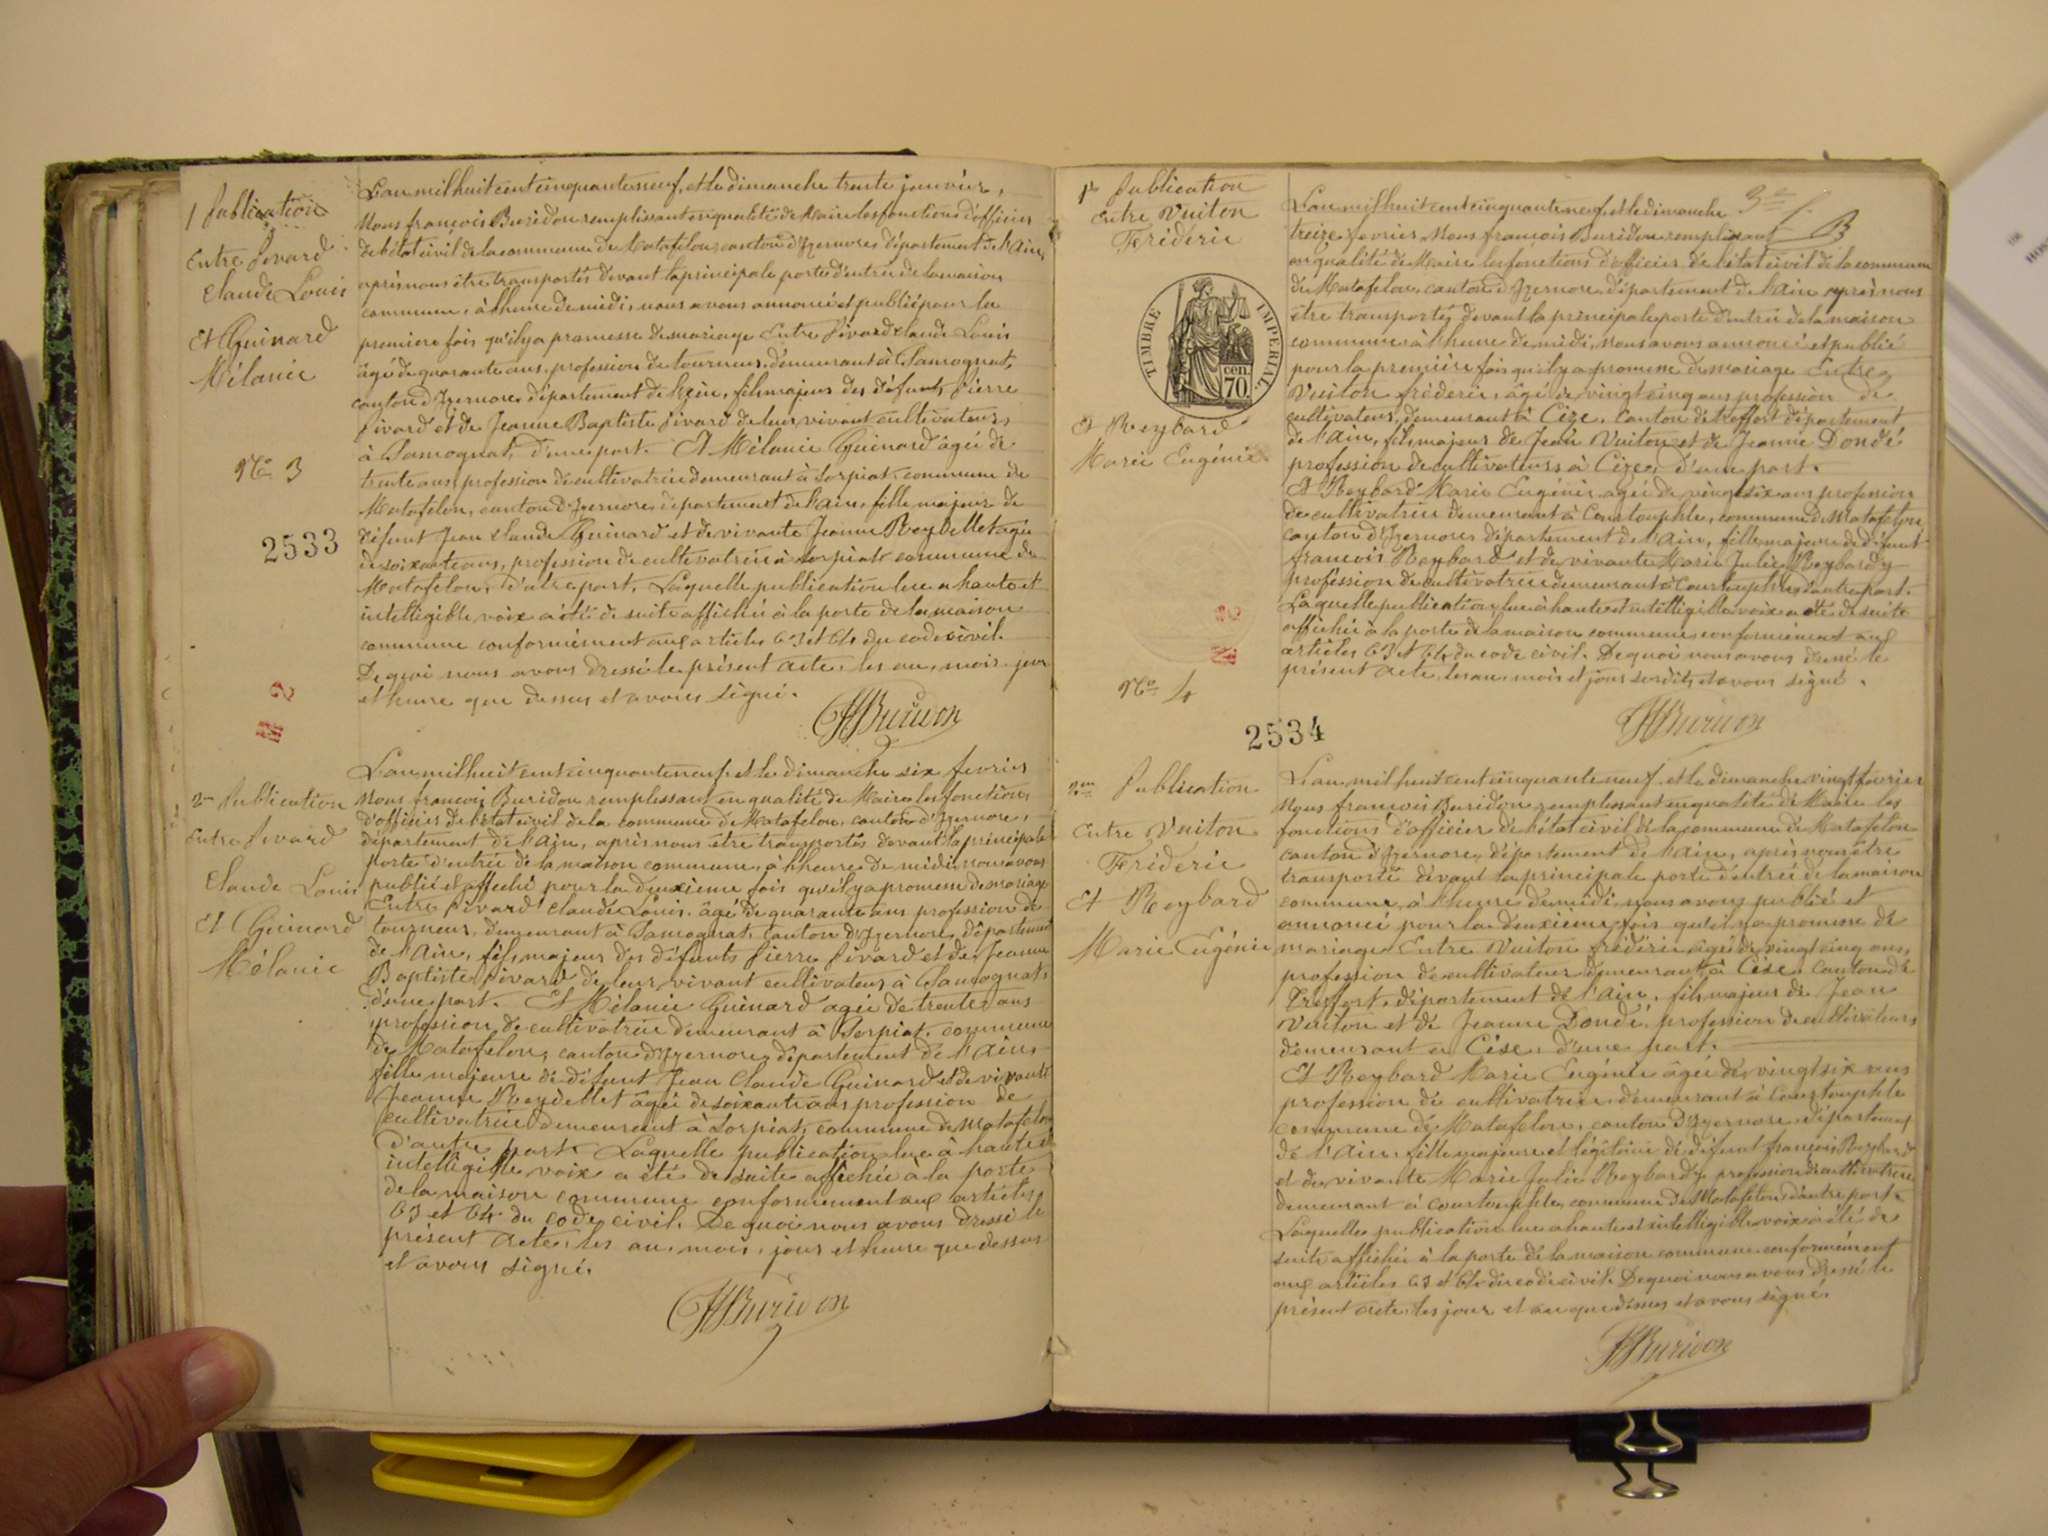 1 Publication
Entre Pivard
Claude Louis
Et Guinard
Mélanie
No 3
2533
L'an mil huit cent cinquante neuf, et le dimanche trente janvier,
Nous françois Buridon remplissant en qualité de Maire les fonctions d'officier
de l'état civil de la commune de Matafelon, canton d'Izernore, département de l'Ain,
après nous être transportés devant la principale porte d'entrée de la maison
commune, à l'heure de midi, nous avons annoncé et publié pour la
premiere fois qu'il y a promesse de mariage Entre Pivard Claude Louis
âgé de quarante ans, profession de tourneur, demeurant à Samognat,
canton d'Izernore, département de l'Ain, fils majeur des défunts Pierre
Pivard et de Jeanne Baptiste Pivard de leur vivant cultivateurs
à Samognat, d'une part. Et Mélanie Guinard âgée de
trente ans, profession de cultivatrice demeurant à Sorpiat, commune de
Matafelon, canton d'Izernore, département de l'Ain, fille majeure de
défunt Jean Claude Guinard et de vivante Jeanne Reydellet agée
de soixante ans, profession de cultivatrice à Sorpiat commune de
Matafelon, d'autre part, Laquelle publication lue a haute et
intelligible voix a été de suite affichée à la porte de la maison
commune conformément aux articles 63 et 64 du code civil.
De quoi nous avons dressé le présent acte, les an, mois, jour
et heure que dessus et avons signé.
Buridon
2me Publication
Entre Pivard
Claude Louis
Et Guinard
Mélanie
L'an mil huit cent cinquante neuf, et le dimanche six fevrier
Nous françois Buridon remplissant en qualité de Maire les fonctions
d'officier de l'état civil de la commune de Matafelon, canton d'Izernore,
département de l'Ain, après nous être transportés devant la principale
porte d'entrée de la maison commune, à l'heure de midi, nous avons
publié et affiché pour la deuxième fois qu'il y a promesse de mariage
Entre Pivard Claude Louis, âgé de quarante ans profession de
tourneur, demeurant à Samognat, canton d'Izernore, département
de l'Ain, fils majeur des défunts Pierre Pivard et de Jeanne
Baptiste Pivard de leur vivant cultivateurs à Samognat,
d'une part. Et Mélanie Guinard agée de trente ans
profession de cultivatrice demeurant à Sorpiat, commune
de Matafelon, canton d'Izernore, département de l'Ain,
fille majeure de défunt Jean Claude Guinard et de vivante
Jeanne Reydellet âgée de soixante ans profession de
cultivatrice demeurant à Sorpiat, commune de Matafelon
d'autre part. Laquelle publication lue à haute et
intelligible voix a été de suite affichée à la porte
de la maison commune conformement aux articles
63 et 64 du code civil. De quoi nous avons dressé le
présent acte, les an, mois, jour et heure que dessus
et avons signé.
Buridon
1re Publication
Entre Vuiton
Fréderic
TIMBRE IMPERIAL
70 cen
Et Reybard
Marie Eugénie
No 4
2534
3me f.
B
L'an mil huit cent cinquante neuf, et le dimanche
treize fevrier Nous françois Buridon remplissant
en qualité de Maire les fonctions d'officier de l'état civil de la commune
de Matafelon, canton d'Izernore, département de l'Ain après nous
être transportés devant la principale porte d'entrée de la maison
commune à l'heure de midi, nous avons annoncé et publié
pour la première fois qu'il y a promesse de mariage Entre
Vuiton fréderic, âgé de vingt cinq ans profession de
cultivateur, demeurant à Cize, canton de Treffort département
de l'Ain, fils majeur de Jean Vuiton et de Jeanne Dondé
profession de cultivateurs à Cize, d'une part.
Et Reybard Marie Eugénie agée de vingt six ans profession
de cultivatrice demeurant à Courtouphle, commune de Matafelon,
canton d'Izernore département de l'Ain, fille majeure de défunt
francois Reybard et de vivante Marie Julie Reybard,
profession de cultivatrice demeurant à Courtouphle, d'autre part.
Laquelle publication lue à haute et intelligible voix a été de suite
affichée à la porte de la maison commune, conformément aux
articles 63 et 64 du code civil. De quoi nous avons dressé le
présent acte, les an, mois et jour susdits et avons signé.
Buridon
2me Publication
Entre Vuiton
Fréderic
Et Reybard
Marie Eugénie
L'an mil huit cent cinquante neuf, et le dimanche vingt fevrier
Nous francois Buridon remplissant en qualité de Maire les
fonctions d'officier de l'état civil de la commune de Matafelon
canton d'Izernore, département de l'Ain, après nous être
transporté devant la principale porte d'entrée de la maison
commune, à l'heure de midi, nous avons publié et
annoncé pour la deuxième fois qu'il y a promesse de
mariage Entre Vuiton fréderic agé de vingt cinq ans,
profession de cultivateur demeurant à Cize, canton de
Treffort, département de l'Ain, fils majeur de Jean
Vuiton et de Jeanne Dondé, profession de cultivateurs
demeurant à Cize, d'une part.
Et Reybard Marie Eugénie âgée de vingt six ans
profession de cultivatrice, demeurant à Courtouphle
commune de Matafelon, canton d'Izernore, département
de l'Ain, fille majeure et légitime de défunt françois Reybard
et de vivante Marie Julie Reybard, profession de cultivatrice
demeurant à Courtouphle, commune de Matafelon, d'autre part.
Laquelle publication lue a haute et intelligible voix a été de
suite affichée à la porte de la maison commune conformément
aux articles 63 et 64 du code civil. De quoi nous avons dressé le
présent acte, les jour et an que dessus et avons signé.
Buridon